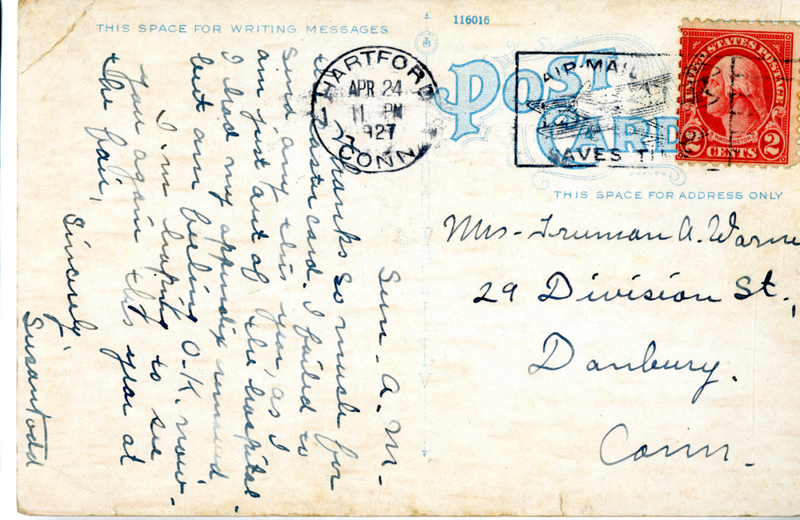 THIS SPACE FOR WRITING MESSAGES
Sun. A.M-
Thanks so much for
Easter card. I failed to
send any this year, as I
am just out of the hospital.
I had my appendix removed
but am feeling O-K. now-
I'm hoping to see
you again this year at
the fair,
Sincerely
Susan Todd
116016
POST CARD
HARTFORD
APR 24
11 PM
1927
CONN.
AIR MAIL
SAVES TI
UNITED STATES POSTAGE
WASHINGTON
2 CENTS 2
THIS SPACE FOR ADDRESS ONLY
Mrs- Truman A. Warne
29 Division St.,
Danbury.
Conn.